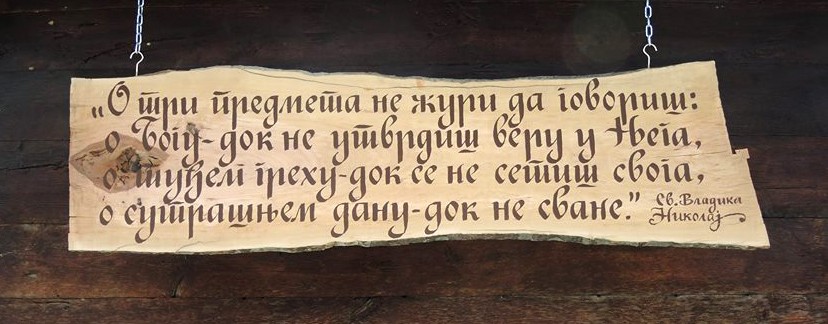 „О три предмета не жури да говориш:
о Богу-док не утврдиш веру у Њега,
о туђем греху-док се не сетиш свога,
о сутрашњем дану-док не сване.“ Св. Владика
Николај